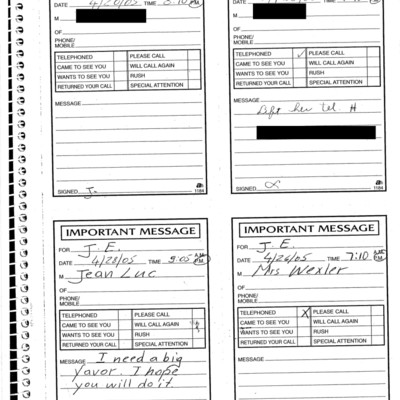 DATE 4/28/05 TIME PM
M
OF
PHONE/
MOBILE
TELEPHONED PLEASE CALL
CAME TO SEE YOU WILL CALL AGAIN
WANTS TO SEE YOU RUSH
RETURNED YOUR CALL SPECIAL ATTENTION
MESSAGE
SIGNED 1184
DATE TIME PM
M
OF
PHONE/
MOBILE
TELEPHONED ✓ PLEASE CALL
CAME TO SEE YOU WILL CALL AGAIN
WANTS TO SEE YOU RUSH
RETURNED YOUR CALL SPECIAL ATTENTION
MESSAGE
Left her tel. #
SIGNED 1184
IMPORTANT MESSAGE
FOR J.E.
DATE 4/28/05 TIME AM PM
M Jean Luc
OF
PHONE/
MOBILE
TELEPHONED PLEASE CALL
CAME TO SEE YOU WILL CALL AGAIN
WANTS TO SEE YOU RUSH
RETURNED YOUR CALL SPECIAL ATTENTION
MESSAGE I need a big
favor. I hope
you will do it
IMPORTANT MESSAGE
FOR J.E.
DATE 4/26/05 TIME 7:10 AM PM
M Mrs Wexler
OF
PHONE/
MOBILE
TELEPHONED X PLEASE CALL
CAME TO SEE YOU WILL CALL AGAIN
WANTS TO SEE YOU RUSH
RETURNED YOUR CALL SPECIAL ATTENTION
MESSAGE